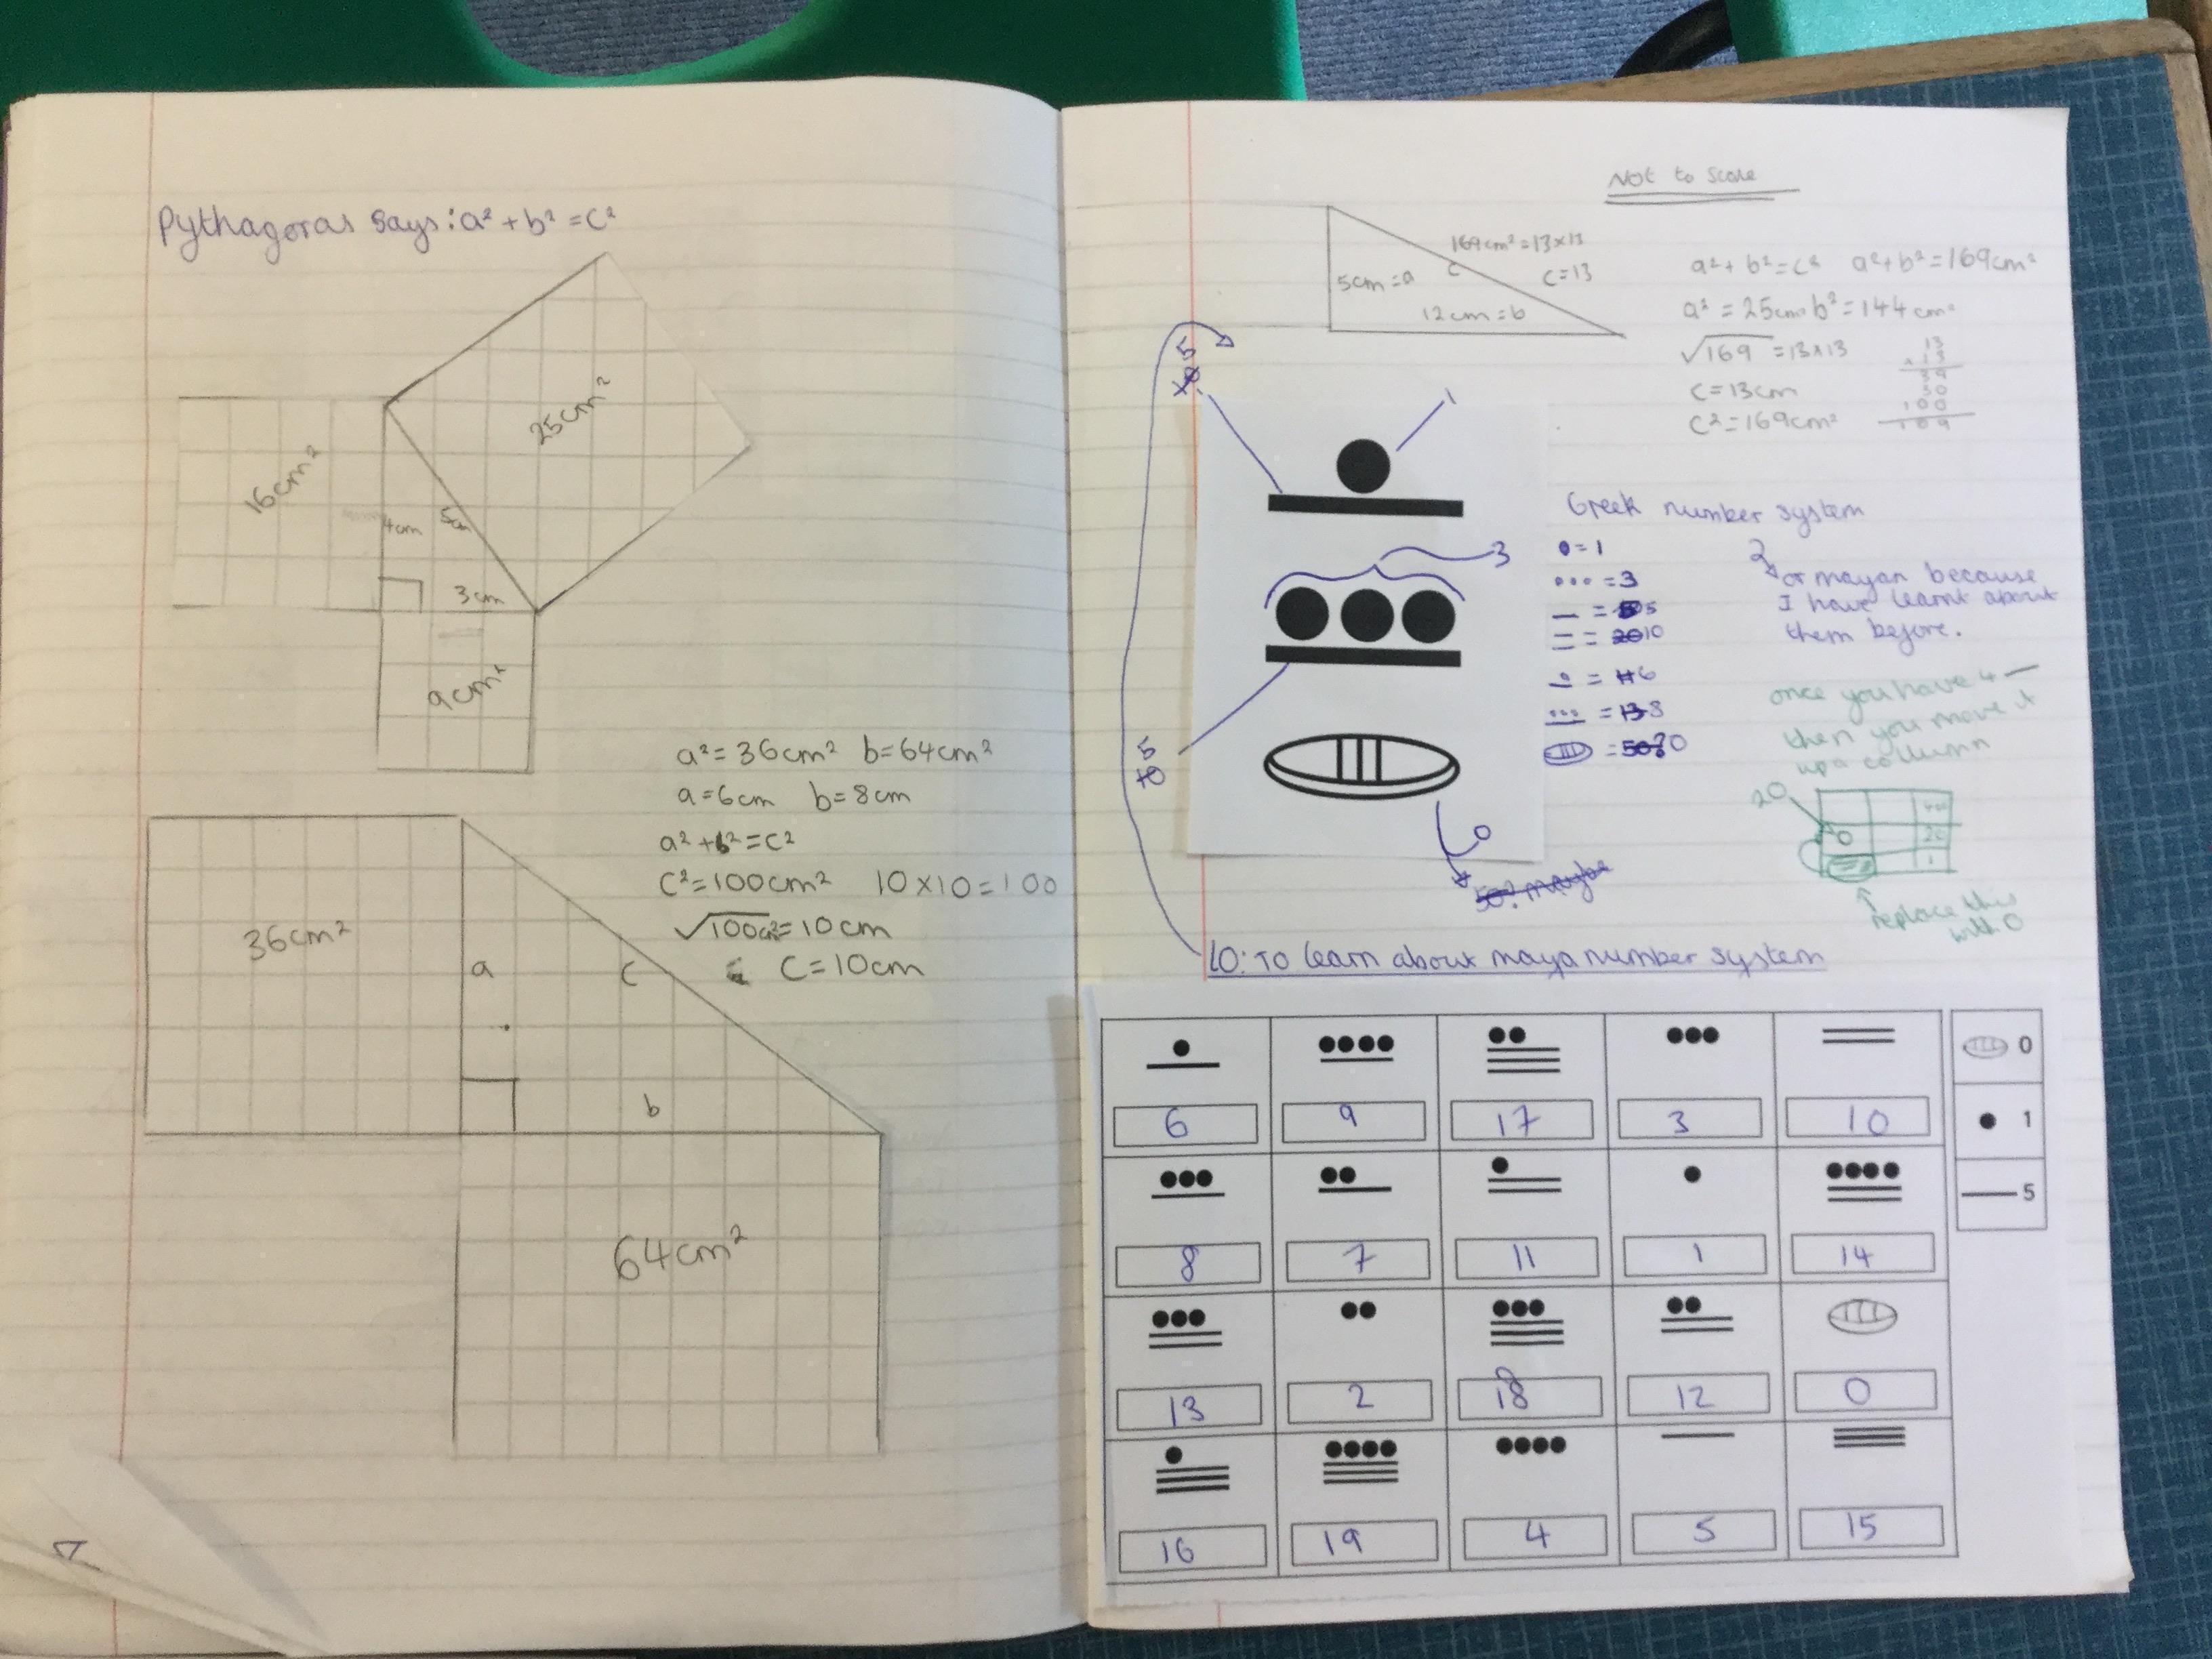 Pythagoras says: a² + b² = c²
25cm²
16cm²
4cm
5cm
3cm
9cm²
a² = 36cm² b = 64cm²
a = 6cm b = 8cm
a² + b² = c²
c² = 100cm² 10 × 10 = 100
√100cm² = 10cm
c = 10cm
36cm²
a
c
b
64cm²
Not to scale
169cm² = 13×13
5cm = a
c
c = 13
12cm = b
a² + b² = c² a² + b² = 169cm²
a² = 25cm² b² = 144cm²
√169 = 13×13
c = 13cm
c² = 169cm²
13
× 13
39
30
100
169
5
1
3
5
0
50? maybe
Greek number system
• = 1
••• = 3
— = 5
= 2010
= 6
= 8
= 0
? or mayan because
I have learnt about
them before.
once you have 4 —
then you move it
up a column
20
400
0 20
1
replace this
with 0
LO: To learn about maya number system
6 9 17 3 10
8 7 11 1 14
13 2 18 12 0
16 19 4 5 15
0
1
5